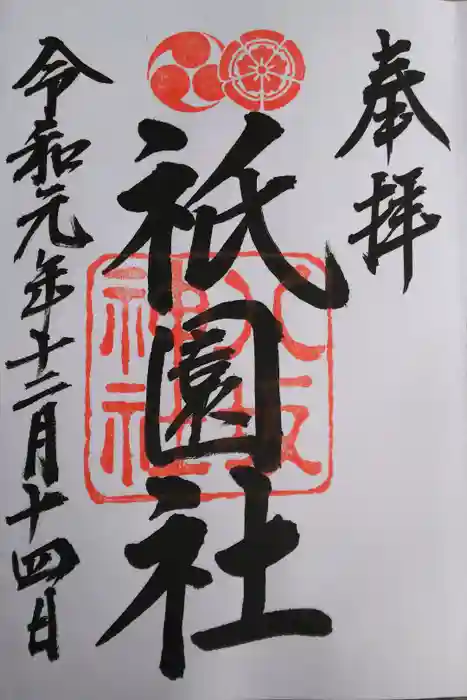 奉拝
祇園社
八坂
神社
令和元年十二月十四日